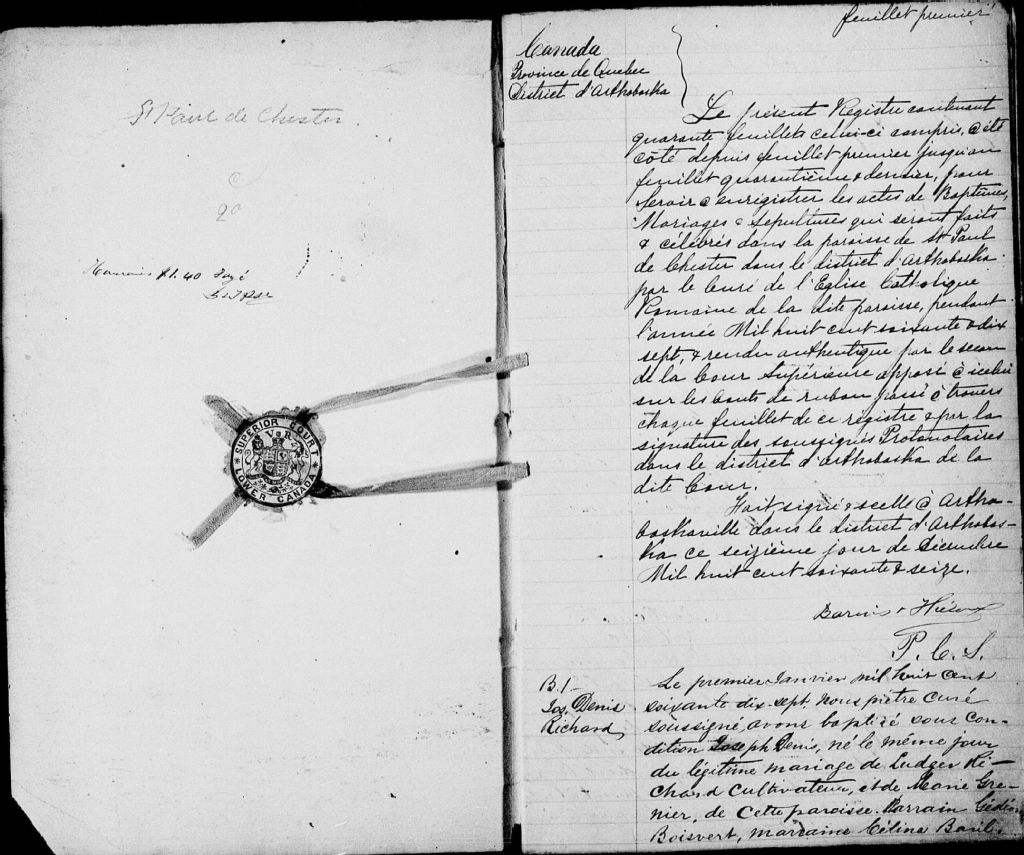 St Paul de Chester
20
$1.40
SUPERIOR COURT
V R
LOWER CANADA
feuillet premier
Canada
Province de Quebec
District d'Arthabaska
Le présent Registre contenant
quarante feuillets celui-ci compris, a été
côté depuis feuillet premier jusqu'au
feuillet quarantième & dernier, pour
servir à enregistrer les actes de Baptêmes,
Mariages & Sépultures qui seront faits
& célébrés dans la paroisse de St Paul
de Chester dans le district d'Arthabaska
par le Curé de l'Eglise Catholique
Romaine de la dite paroisse, pendant
l'année Mil huit cent soixante & dix
sept, & rendu authentique par le sceau
de la Cour Supérieure apposé à icelui
sur les bouts de ruban passé à travers
chaque feuillet de ce registre & par la
signature des soussignés Protonotaires
dans le district d'Arthabaska de la
dite Cour.
Fait signé & scellé à Artha-
baskaville dans le district d'Arthabas-
ka ce seizième jour de Décembre
Mil huit cent soixante & seize.
P. C. S.
B. 1
Jos. Denis
Richard
Le premier Janvier mil huit cent
soixante dix-sept nous prêtre curé
soussigné, avons baptisé sous con-
dition Joseph Denis, né le même jour
du légitime mariage de Ludger Ri-
chard cultivateur, et de Marie Gre-
nier, de cette paroisse. Parrain Gédéon
Boisvert, marraine Célina Baril.